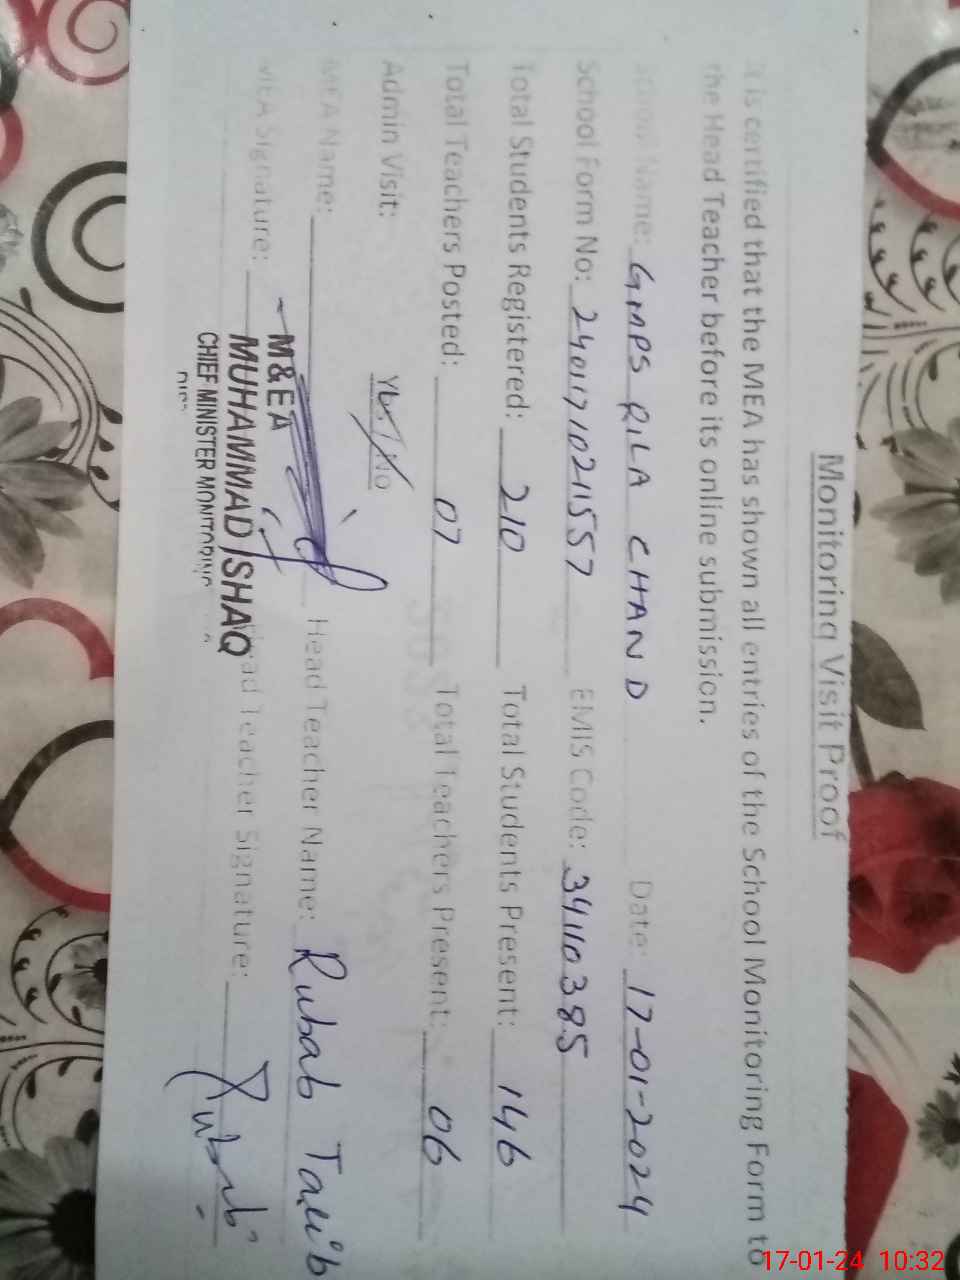 Monitoring Visit Proof
It is certified that the MEA has shown all entries of the School Monitoring Form to
the Head Teacher before its online submission.
School Name: GMPS RILA CHAND Date: 17-01-2024
School Form No: 2401171021157 EMIS Code: 34110385
Total Students Registered: 210 Total Students Present: 146
Total Teachers Posted: 07 Total Teachers Present: 06
Admin Visit: Yes / No
MEA Name: Head Teacher Name: Rubab Talib
MEA Signature: Head Teacher Signature: Rubab
M&EA
MUHAMMAD ISHAQ
CHIEF MINISTER MONITORING
17-01-24 10:32